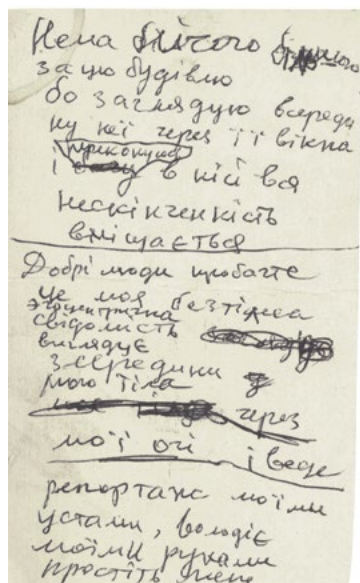 Нема більшого більшого
за цю будівлю
бо заглядую всереди
ну неї через її вікна
переконуюсь
і в ній вся
нескінченність
вміщається
Добрі люди пробачте
це моя безтілесна
эгоцентрична
свідомість
виглядує
зсередини
мого тіла
через
мої очі і веде
репортаж моїми
устами, володіє
моїми руками
простіть мене